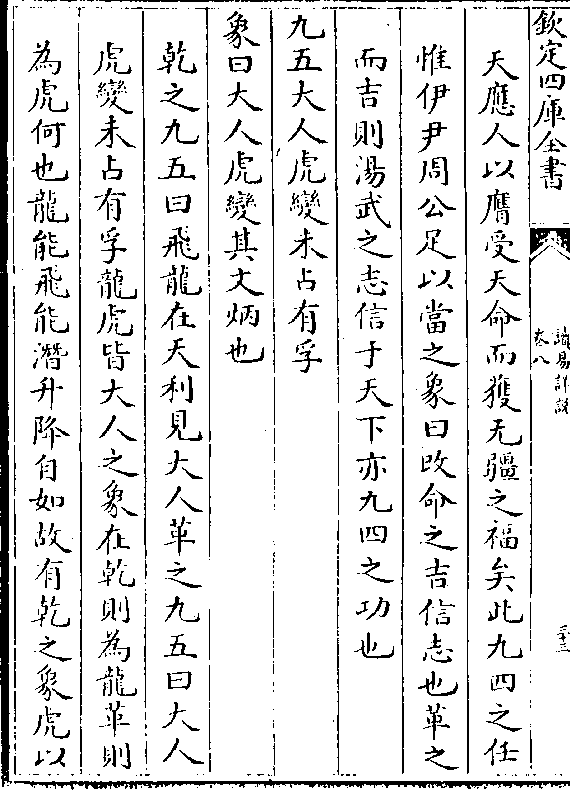 欽定四庫全書
讀易詳說
卷八
三十三
天應人以膺受天命而獲无疆之福矣此九四之任
惟伊尹周公足以當之象曰改命之吉信志也革之
而吉則湯武之志信于天下亦九四之功也
九五大人虎變未占有孚
象曰大人虎變其文炳也
乾之九五曰飛龍在天利見大人革之九五曰大人
虎變未占有孚龍虎皆大人之象在乾則為龍革則
為虎何也龍能飛能潛升降自如故有乾之象虎以